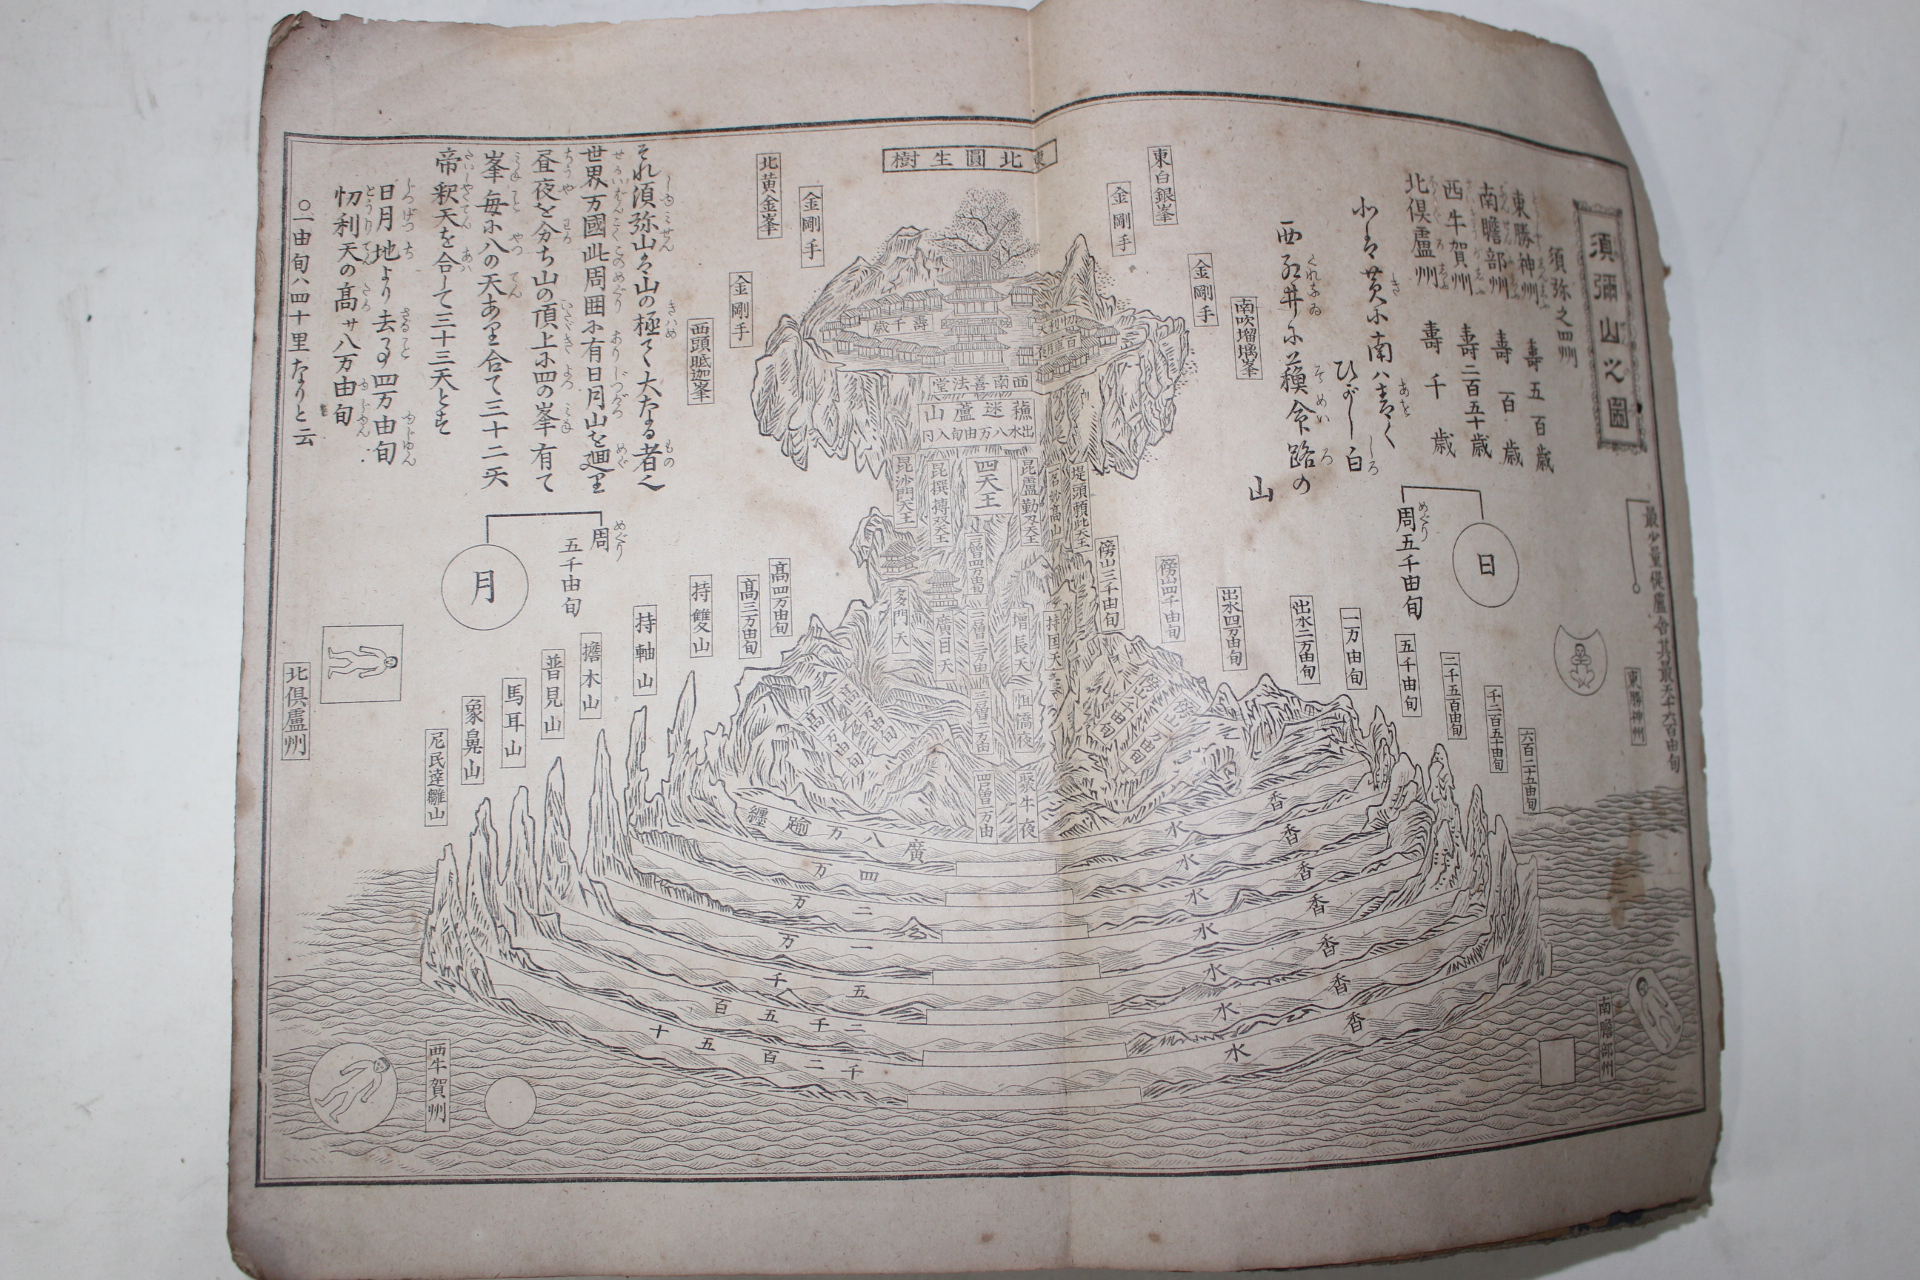 須彌山之圖
須弥之四州
東勝神州 壽五百歳
南瞻部州 壽百歳
西牛賀州 壽二百五十歳
北倶盧州 壽千歳
北は黄に南は青く
ひがし白
西くれなゐに蘓命路の
山
日
周五千由旬
東白銀峯
金剛手
金剛手
南吹瑠璃峯
東北圓生樹
北黄金峯
金剛手
金剛手
西頭胝迦峯
それ須弥山は山の極て大なる者也
世界万國此周囲に有日月山を廻り
昼夜を分ち山の頂上に四の峯有て
峯毎に八の天あり合て三十二天
帝釈天を合して三十三天とす
日月地より去る事四万由旬
忉利天の髙サ八万由旬
〇一由旬八四十里なりと云
月
周五千由旬
壽千歳
西南善法堂
蘓迷盧山
出水八万由旬入同
四天王
昆沙門天王
一名妙髙山
多門天
廣目天
増長天
持国天
傍山三千由旬
傍山四千由旬
出水四万由旬
出水二万由旬
一万由旬
五千由旬
二千五百由旬
千二百五十由旬
六百二十五由旬
髙四万由旬
髙三万由旬
持雙山
持軸山
擔木山
普見山
馬耳山
象鼻山
尼民達離山
三層四万由旬
三層二万由
四层一万由
恒憍夜
纏踰万八廣
万四
万二
万一
千五
百五千二
十五百二千
香水
香水
香水
香水
香水
香水
香水
東勝神州
南瞻部州
西牛賀州
北倶盧州